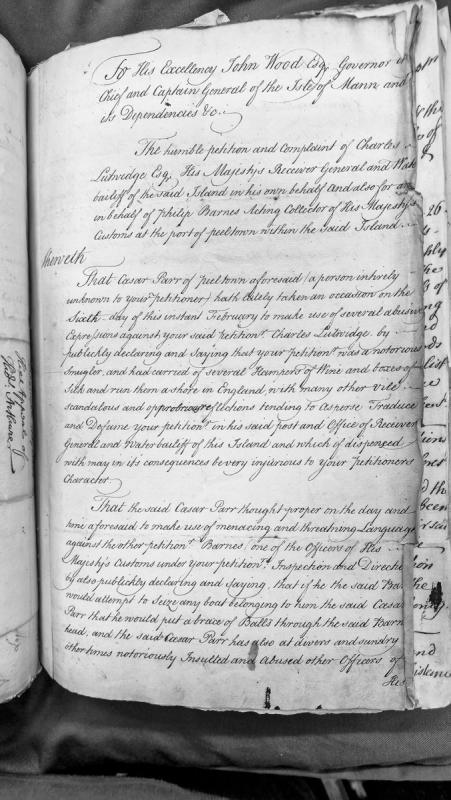 To His Excellency John Wood Esq. Governor in
Chief and Captain General of the Isle of Mann and
its Dependencies &c.
The humble petition and Complaint of Charles
Lutwidge Esq. His Majestys Receiver General and Water
bailiff of the said Island in his own behalf And also for and
in behalf of Philip Barnes Acting Collector of His Majesty's
Customs at the port of peeltown within the Said Island
Sheweth
That Cæsar Parr of peeltown aforesaid (a person intirely
unknown to your petitioner) hath lately taken an occasion on the
Sixth day of this instant February to make use of several abusive
Expressions against your said petitionr. Charles Lutwidge by
publickly declaring and Saying that your petitionr. was a notorious
Smugler, and had carried of several Hampers of Wine and boxes of
Silk and run them a shore in England, with many other Vile
scandalous and opprobrious reflections tending to Asperse Traduce
and Defame your petitionr. in his said post and Office of Receiver
General and Water bailiff of this Island and which if dispenced
with may in its consequences be very injurious to your Petitioners
Character
That the said Cæsar Parr thought proper on the day and
time aforesaid to make use of menacing and threatning Language
against the other petitionr. Barnes (one of the Officers of His
Majesty's Customs under your petitionr. Inspection and Directi
by also publickly declaring and saying, that if he the said Bar
would attempt to Seize any boat belonging to him the said Cæsar
Parr that he would put a brace of Balls through the said Barn
head, and the said Cæsar Parr has also at divers and sundry
other times notoriously Insulted and Abused other Officers of
His